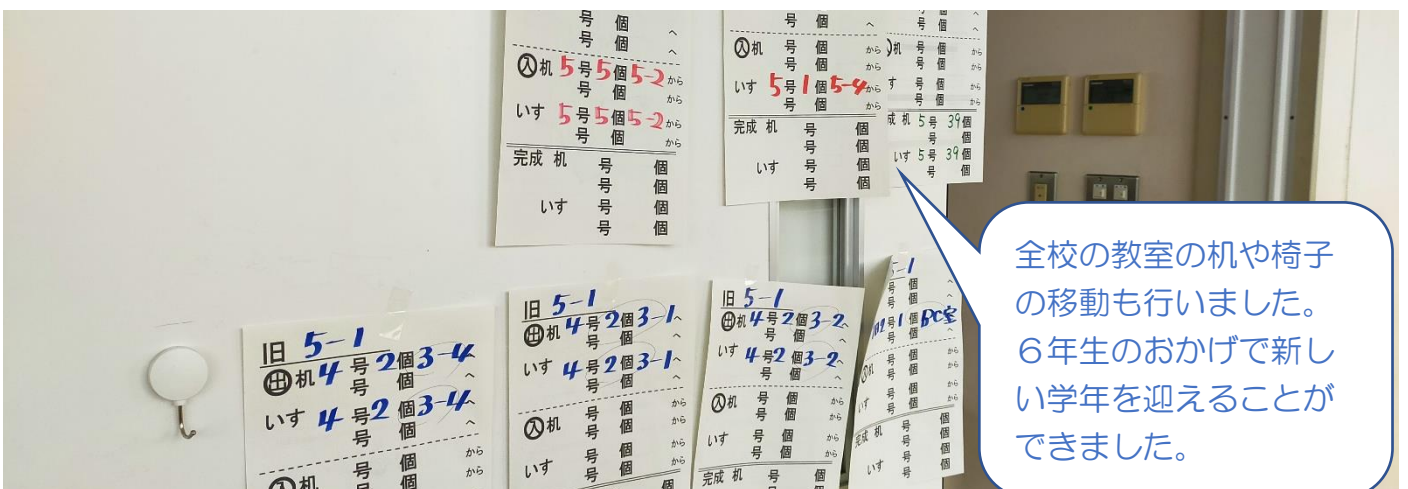 号 個 へ
号 個 へ
入 机 5号5個5-2から
号 個 から
いす 5号5個5-2から
号 個 から
完成 机 号 個
号 個
いす 号 個
号 個
号 個 へ
入 机 号 個 から
号 個 から
いす 5号1個5-4から
号 個 から
完成 机 号 個
号 個
いす 号 個
号 個
号 個 へ
号 個 へ
机 号 個 から
号 個 から
す 号 個 から
号 個 から
成 机 5号 39個
号 個
いす 5号 39個
号 個
旧 5-1
出 机 4号2個3-4へ
号 個 へ
いす 4号2個3-4へ
号 個 へ
号 個 から
入 机 号 個 から
旧 5-1
出 机 4号2個3-1へ
号 個 へ
いす 4号2個3-1へ
号 個 へ
入 机 号 個 から
号 個 から
いす 号 個 から
号 個 から
個
旧 5-1
出 机 4号2個3-2へ
号 個 へ
いす 4号2個3-2へ
号 個 へ
入 机 号 個 から
号 個 から
いす 号 個 から
号 個 から
完成 机 号 個
5-1
号 個 へ
号 個 へ
号1個PC室
号 個 へ
入 机 号 個 から
号 個 から
いす 号 個 から
号 個 から
完成 机 号 個
号 個
いす 号 個
号 個
全校の教室の机や椅子
の移動も行いました。
６年生のおかげで新し
い学年を迎えることが
できました。